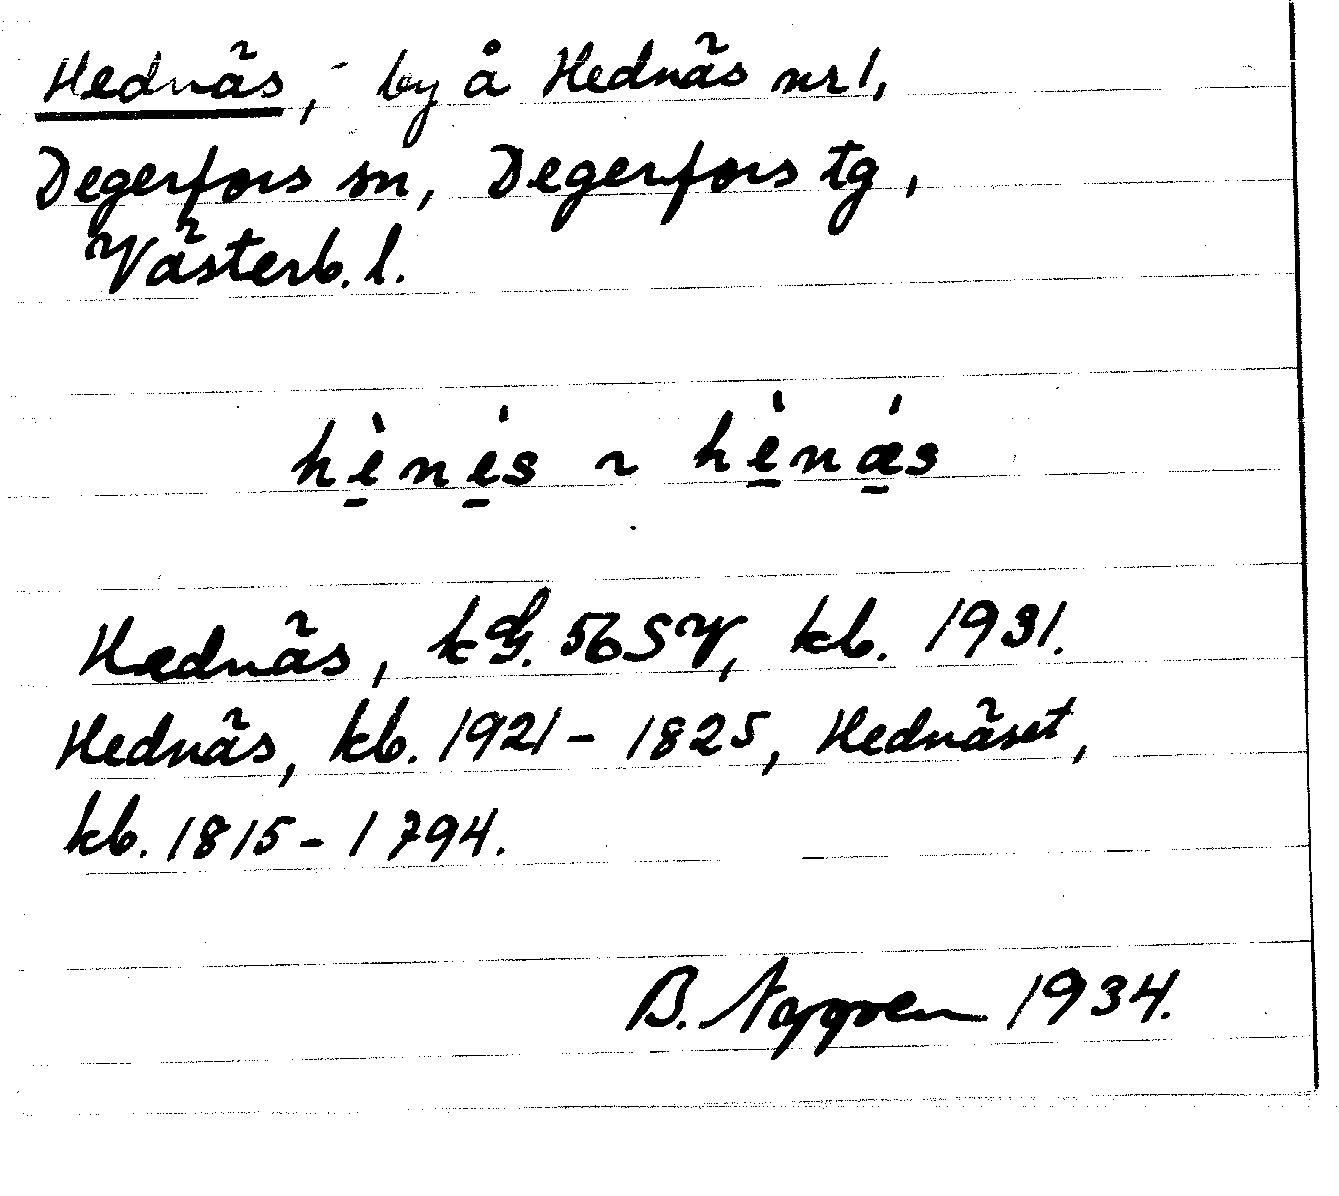 Hednäs, - by å Hednäs nr 1,
Degerfors sn, Degerfors tg,
Västerb. l.
hè̱né̱s ~ hè̱nǽ̱s
Hednäs, 56 SV, kb. 1931.
Hednäs, kb. 1921 - 1825, Hednäset,
kb. 1815 - 1794.
B. 1934.